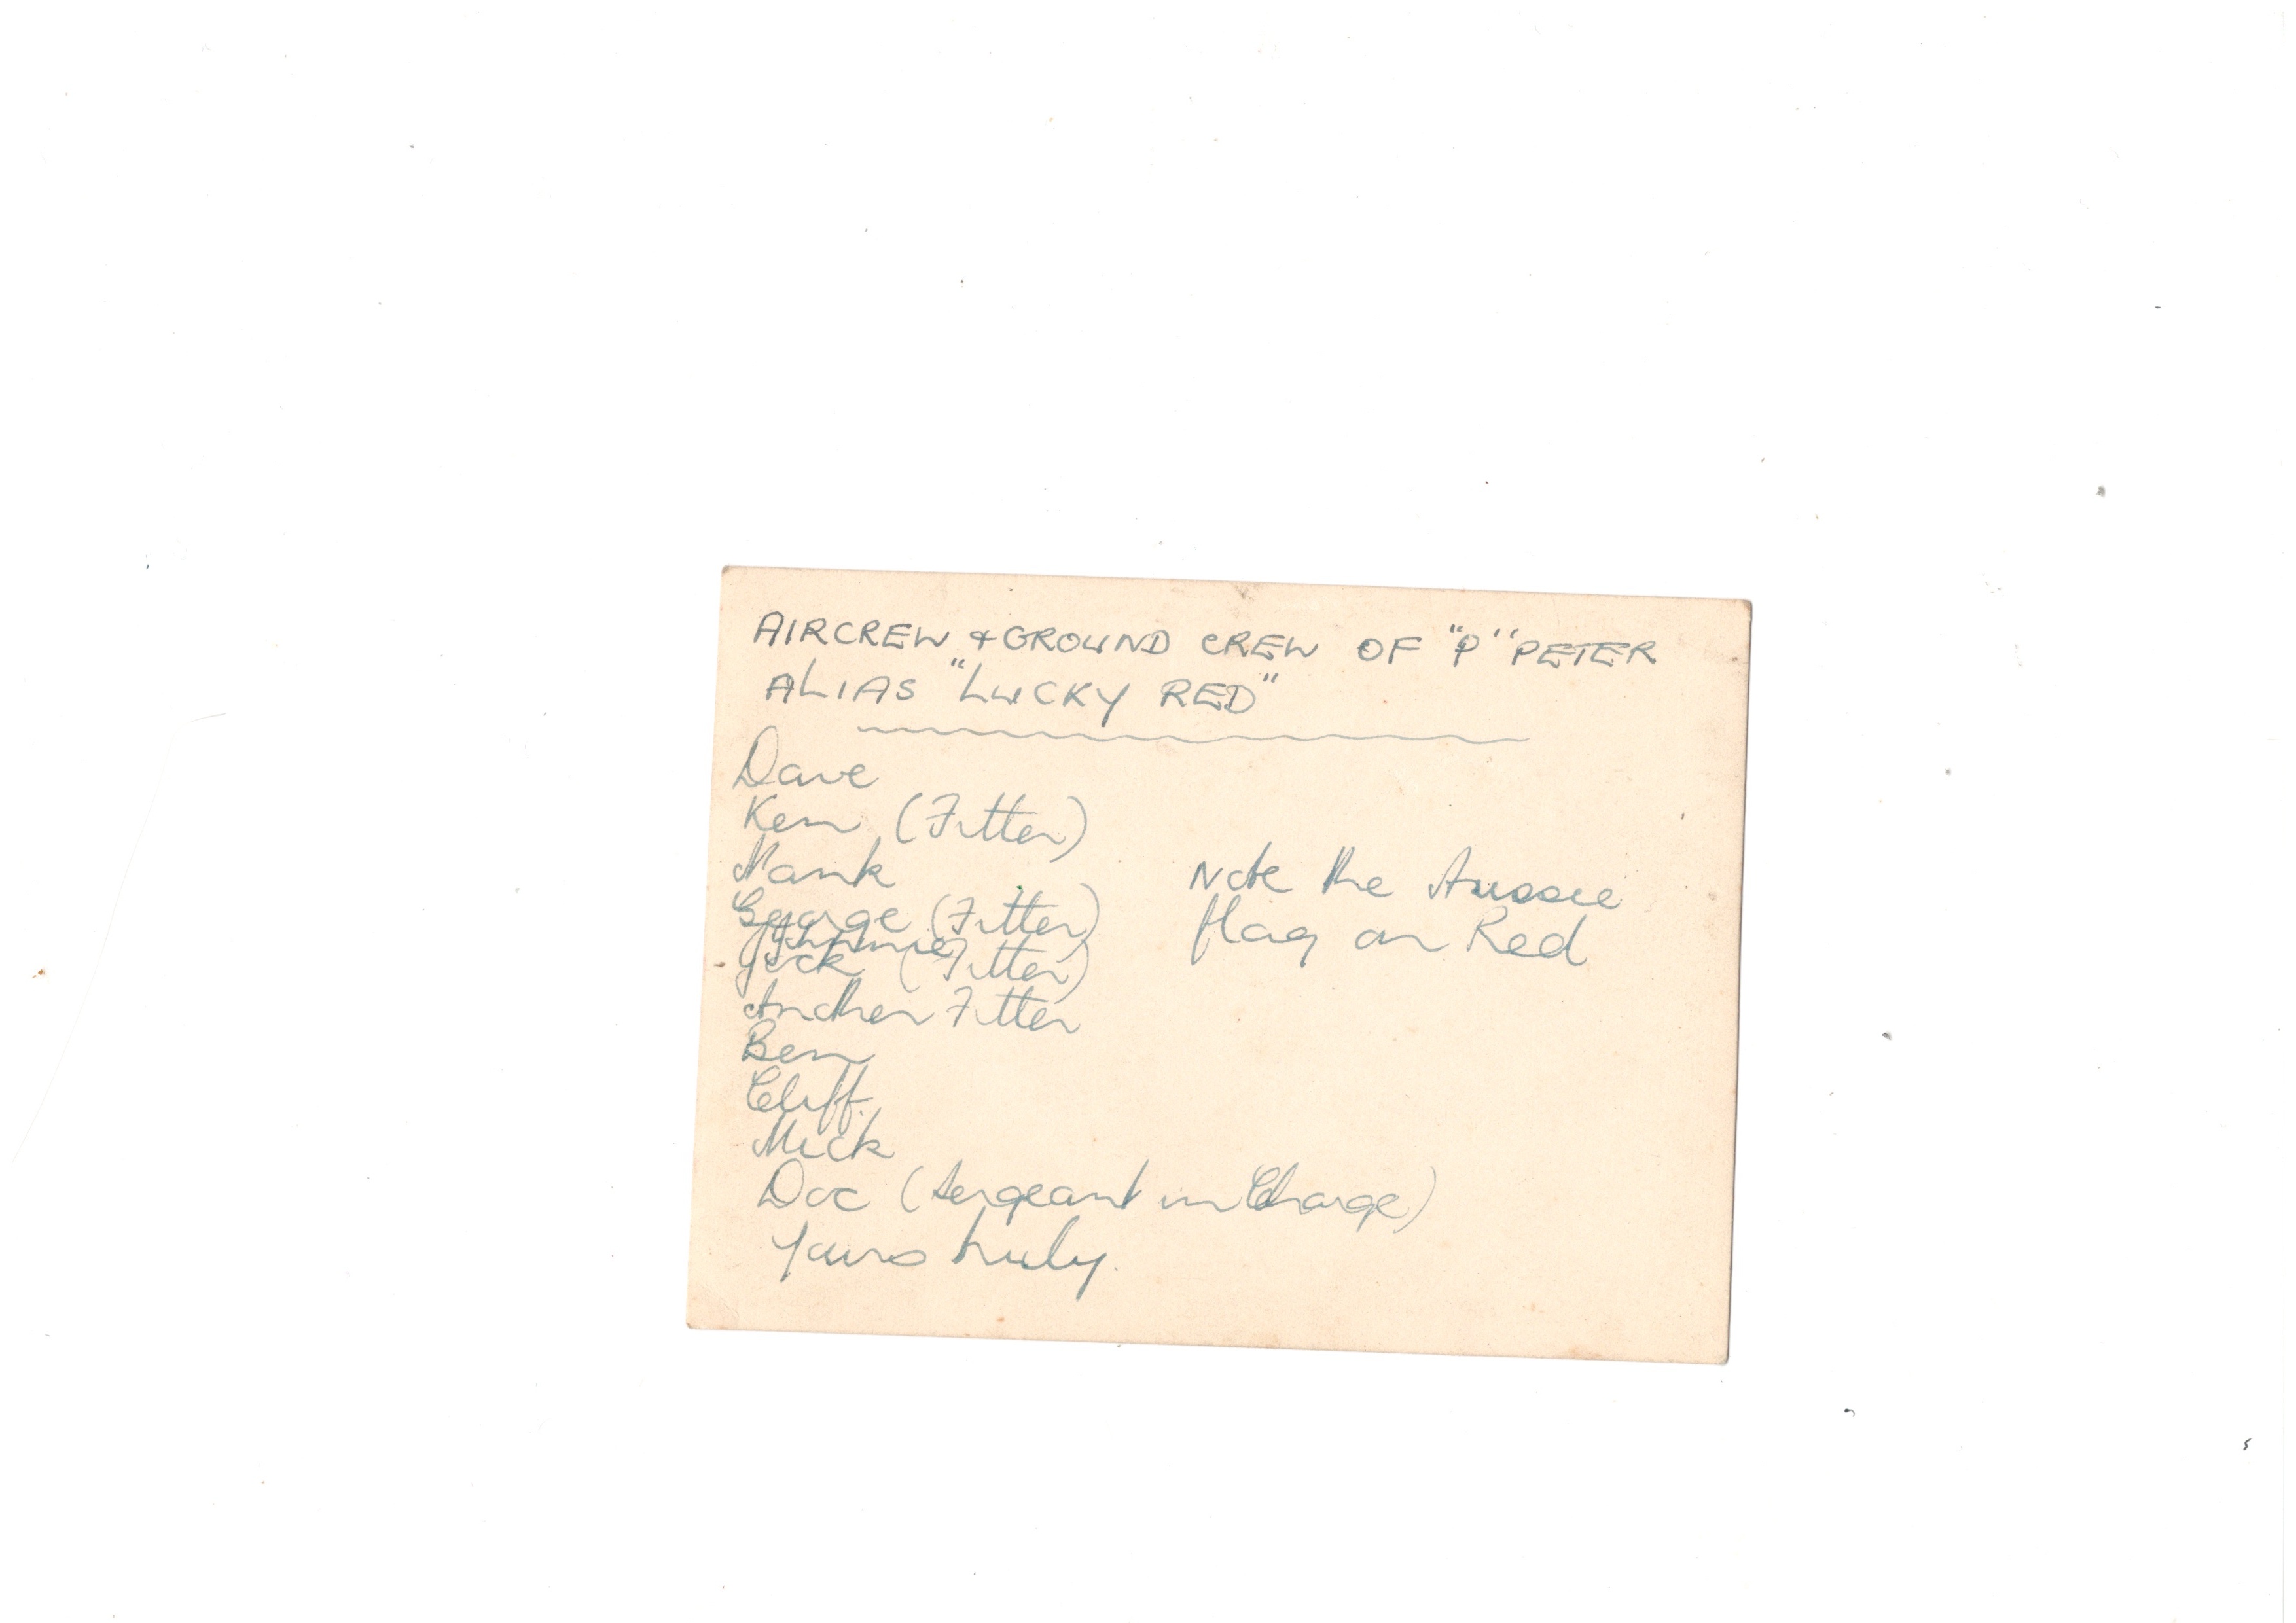 AIRCREW + GROUND CREW OF "P" PETER
ALIAS "LUCKY RED"
Dave
Ken (Fitter)
Hank
George (Fitter)
Johnnie
Jock (Fitter)
Another Fitter
Ben
Cliff.
Mick
Doc (Sergeant in Charge)
Yours truly.
Note the Aussie
flag on Red